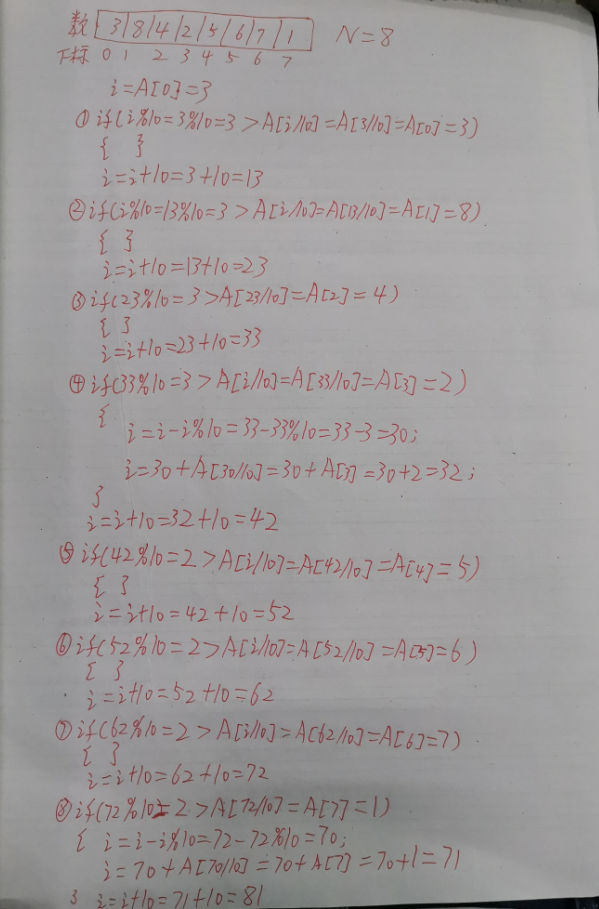 数 3 8 4 2 5 6 7 1 N=8
下标 0 1 2 3 4 5 6 7
i=A[0]=3
① if(i%10=3%10=3>A[i/10]=A[3/10]=A[0]=3)
{ }
i=i+10=3+10=13
② if(i%10=13%10=3>A[i/10]=A[13/10]=A[1]=8)
{ }
i=i+10=13+10=23
③ if(23%10=3>A[23/10]=A[2]=4)
{ }
i=i+10=23+10=33
④ if(33%10=3>A[i/10]=A[33/10]=A[3]=2)
{
i=i-i%10=33-33%10=33-3=30;
i=30+A[30/10]=30+A[3]=30+2=32;
}
i=i+10=32+10=42
⑤ if(42%10=2>A[i/10]=A[42/10]=A[4]=5)
{ }
i=i+10=42+10=52
⑥ if(52%10=2>A[i/10]=A[52/10]=A[5]=6)
{ }
i=i+10=52+10=62
⑦ if(62%10=2>A[i/10]=A[62/10]=A[6]=7)
{ }
i=i+10=62+10=72
⑧ if(72%10=2>A[72/10]=A[7]=1)
{ i=i-i%10=72-72%10=70;
i=70+A[70/10]=70+A[7]=70+1=71
} i=i+10=71+10=81